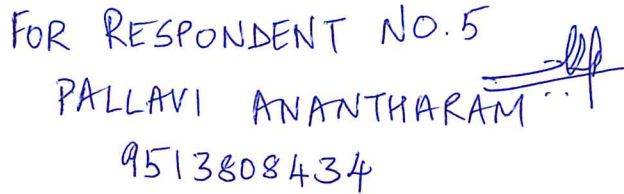 FOR RESPONDENT NO.5
PALLAVI ANANTHARAM
9513808434